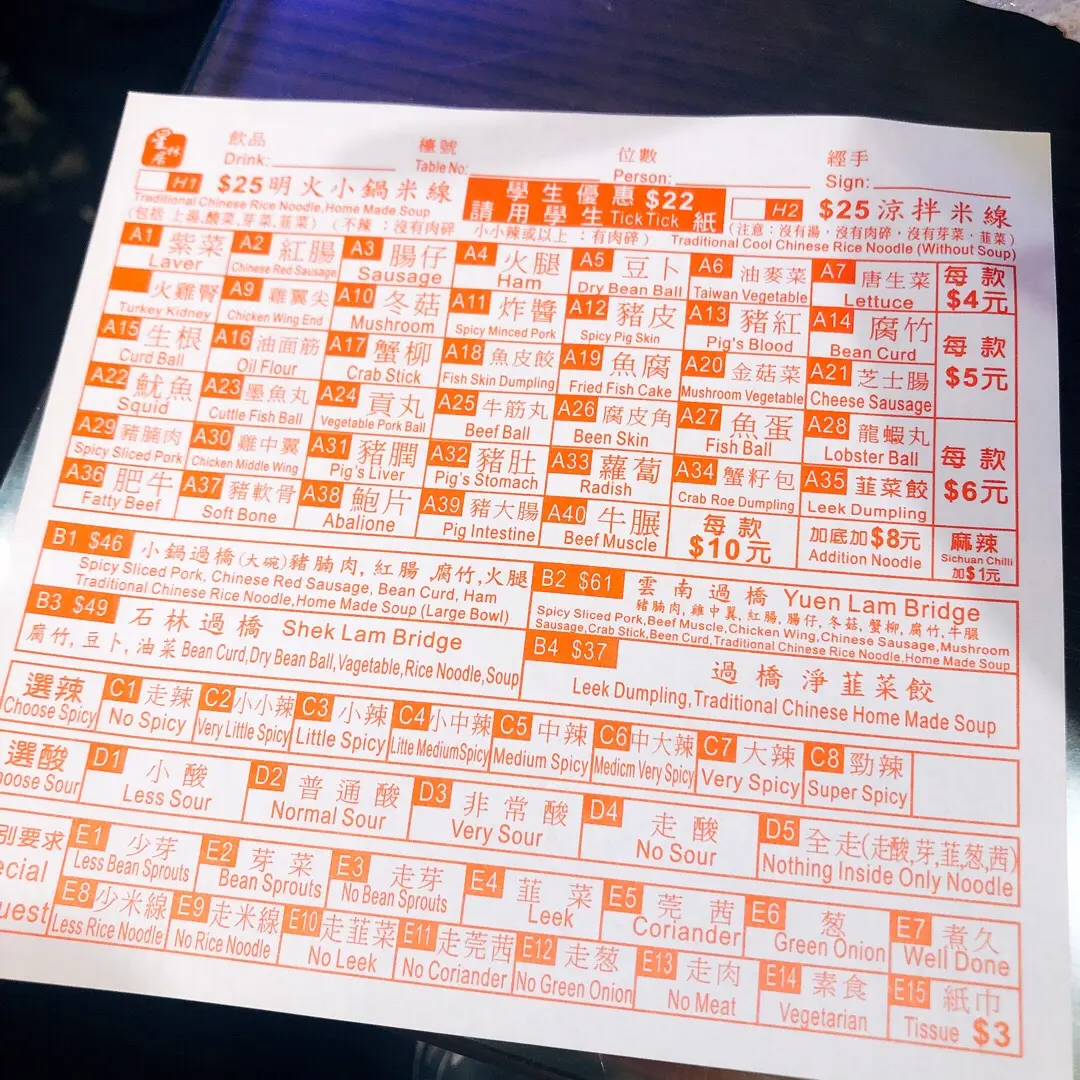 星林居 飲品 Drink: 檯號 Table No: 位數 Person: 經手 Sign:
H1 $25明火小鍋米線
Traditional Chinese Rice Noodle,Home Made Soup
(包括 上湯,酸菜,芽菜,韮菜) (不辣 : 沒有肉碎 小小辣或以上 : 有肉碎)
學生優惠 $22
請用學生TickTick 紙
H2 $25涼拌米線
(注意 : 沒有湯 , 沒有肉碎 , 沒有芽菜 , 韮菜)
Traditional Cool Chinese Rice Noodle (Without Soup)
A1 紫菜 Laver A2 紅腸 Chinese Red Sausage A3 腸仔 Sausage A4 火腿 Ham A5 豆卜 Dry Bean Ball A6 油麥菜 Taiwan Vegetable A7 唐生菜 Lettuce 每款 $4元
火雞腎 Turkey Kidney A9 雞翼尖 Chicken Wing End A10 冬菇 Mushroom A11 炸醬 Spicy Minced Pork A12 豬皮 Spicy Pig Skin A13 豬紅 Pig's Blood A14 腐竹 Bean Curd
每款 $5元
A15 生根 Curd Ball A16 油面筋 Oil Flour A17 蟹柳 Crab Stick A18 魚皮餃 Fish Skin Dumpling A19 魚腐 Fried Fish Cake A20 金菇菜 Mushroom Vegetable A21 芝士腸 Cheese Sausage
A22 魷魚 Squid A23 墨魚丸 Cuttle Fish Ball A24 貢丸 Vegetable Pork Ball A25 牛筋丸 Beef Ball A26 腐皮角 Been Skin A27 魚蛋 Fish Ball A28 龍蝦丸 Lobster Ball
每款 $6元
A29 豬腩肉 Spicy Sliced Pork A30 雞中翼 Chicken Middle Wing A31 豬膶 Pig's Liver A32 豬肚 Pig's Stomach A33 蘿蔔 Radish A34 蟹籽包 Crab Roe Dumpling A35 韮菜餃 Leek Dumpling
A36 肥牛 Fatty Beef A37 豬軟骨 Soft Bone A38 鮑片 Abalione A39 豬大腸 Pig Intestine A40 牛𦟌 Beef Muscle 每款 $10元 加底加$8元 Addition Noodle 麻辣 Sichuan Chilli 加$1元
B1 $46 小鍋過橋(大碗)豬腩肉, 紅腸 ,腐竹,火腿
Spicy Sliced Pork, Chinese Red Sausage, Bean Curd, Ham
Traditional Chinese Rice Noodle,Home Made Soup (Large Bowl)
B2 $61 雲南過橋 Yuen Lam Bridge
豬腩肉, 雞中翼, 紅腸, 腸仔, 冬菇, 蟹柳, 腐竹, 牛𦟌
Spicy Sliced Pork,Beef Muscle,Chicken Wing,Chinese Sausage,Mushroom
Sausage,Crab Stick,Been Curd,Traditional Chinese Rice Noodle,Home Made Soup
B3 $49 石林過橋 Shek Lam Bridge
腐竹, 豆卜, 油菜 Bean Curd,Dry Bean Ball,Vagetable,Rice Noodle,Soup
B4 $37 過橋淨韮菜餃
Leek Dumpling,Traditional Chinese Home Made Soup
選辣 Choose Spicy C1 走辣 No Spicy C2 小小辣 Very Little Spicy C3 小辣 Little Spicy C4 小中辣 Litte MediumSpicy C5 中辣 Medium Spicy C6 中大辣 Medicm Very Spicy C7 大辣 Very Spicy C8 勁辣 Super Spicy
選酸 oose Sour D1 小酸 Less Sour D2 普通酸 Normal Sour D3 非常酸 Very Sour D4 走酸 No Sour D5 全走(走酸,芽,韮,葱,茜) Nothing Inside Only Noodle
別要求 ecial uest E1 少芽 Less Bean Sprouts E2 芽菜 Bean Sprouts E3 走芽 No Bean Sprouts E4 韮菜 Leek E5 芫茜 Coriander E6 葱 Green Onion E7 煮久 Well Done
E8 少米線 Less Rice Noodle E9 走米線 No Rice Noodle E10 走韮菜 No Leek E11 走芫茜 No Coriander E12 走葱 No Green Onion E13 走肉 No Meat E14 素食 Vegetarian E15 紙巾 Tissue $3